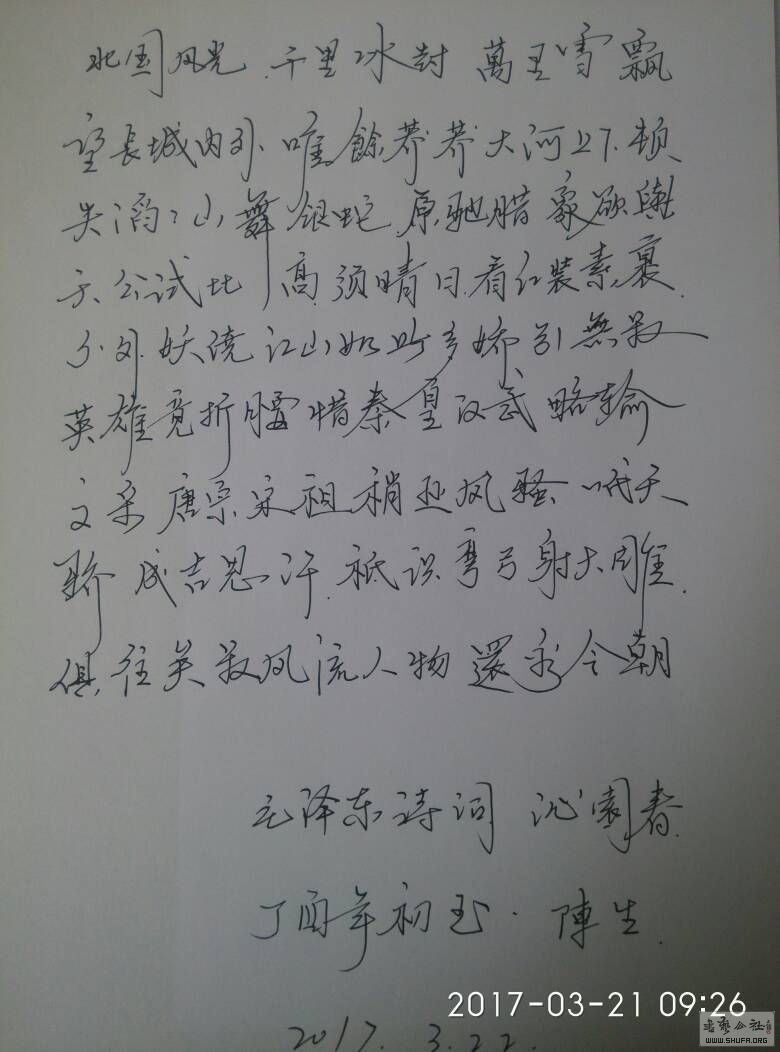 北国风光 千里冰封 萬里雪飄
望長城内外 唯餘莽莽大河上下 頓
失滔滔山舞银蛇 原驰腊象欲與
天公試比高 须晴日看红装素裹
分外妖娆江山如此多娇引無数
英雄竟折腰惜秦皇汉武略输
文采唐宗宋祖稍逊风骚一代天
骄成吉思汗 祗识弯弓射大雕
俱往矣数风流人物還看今朝
毛泽东诗词 沁園春
丁酉年初五· 陳生
2017-03-21 09:26
2017. 3.22
WWW.SHUFA.ORG